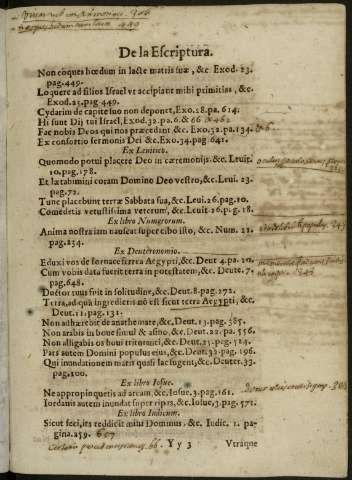 De la Escriptura.
Non coques hœdum in lacte matris suæ, &c. Exod. 23.
pag. 449.
Loquere ad filios Israel vt accipiant mihi primitias, &c.
Exod. 25. pag 449.
Cydarim de capite suo non deponet, Exo. 28. pa. 614.
Hi sunt Dij tui Israel, Exod. 32. pa. 6. & 66
Fac nobis Deos qui nos præcedant, &c. Exo. 32. pa. 134.
Ex consortio sermonis Dei &c. Exo. 34. pag. 641.
Ex Leuitico.
Quomodo potui placere Deo in cæremonijs. &c. Leuit.
10. pag. 178.
Et latabimini coram Domino Deo vestro, &c. Leui. 23.
pag. 72.
Tunc placebunt terræ Sabbata sua, &c. Leui. 26. pag. 10.
Comedetis vetustissima veterum, &c. Leuit. 26. p. g. 18.
Ex libro Numerorum.
Anima nostra iam nauseat super cibo isto, &c. Num. 21.
pag. 234.
Ex Deuteronomio.
Eduxi vos de fornace ferrea Aegypti, &c. Deut 4. pa. 20.
Cum vobis data fuerit terra in potestatem, &c. Deute. 7.
pag. 648.
Ductor tuus fuit in solitudine, &c. Deut. 8. pag. 272.
Terra, ad qua ingredieris nō est sicut terra Aegypti, &c.
Deut. 11. pag. 131.
Non adhærebit de anathemate, &c. Deut. 13. pag. 385.
Non arabis in boue simul & asino &c. Deut. 22. pa. 556.
Non alligabis os boui trituranti, &c. Deut. 25. pag. 124.
Pars autem Domini populus eius, &c. Deut. 32. pag. 196.
Qui inundationem maris quasi lac sugent, &c. Deuter. 33.
pag. 100.
Ex libro Iosue.
Ne appropinquetis ad arcam, &c. Iosue, 3. pag. 161.
Iordanis autem inundat super ripas, &c. Iosue, 3. pag. 571.
Ex libro Iudicum.
Sicut feci, ita reddidit mihi Dominus, &c. Iudic. 1. pa-
gina. 259. 607
Y y 3 Vtraque